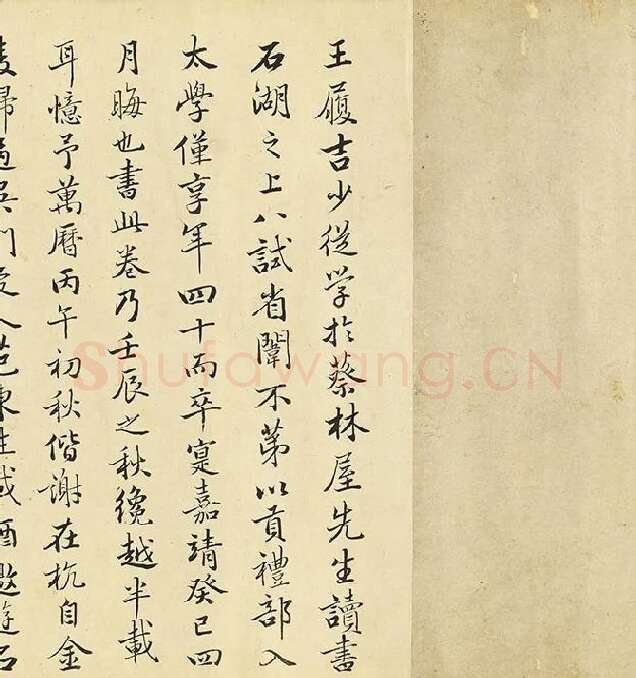 王履吉少從学於蔡林屋先生讀書
石湖之上八試省闈不苐以貢禮部入
太學僅享年四十而卒寔嘉靖癸巳四
月晦也書此卷乃壬辰之秋纔越半載
耳憶予萬曆丙午初秋偕謝在杭自金
歸過吳門友人范東生載酒邀遊石
Shufawang.CN